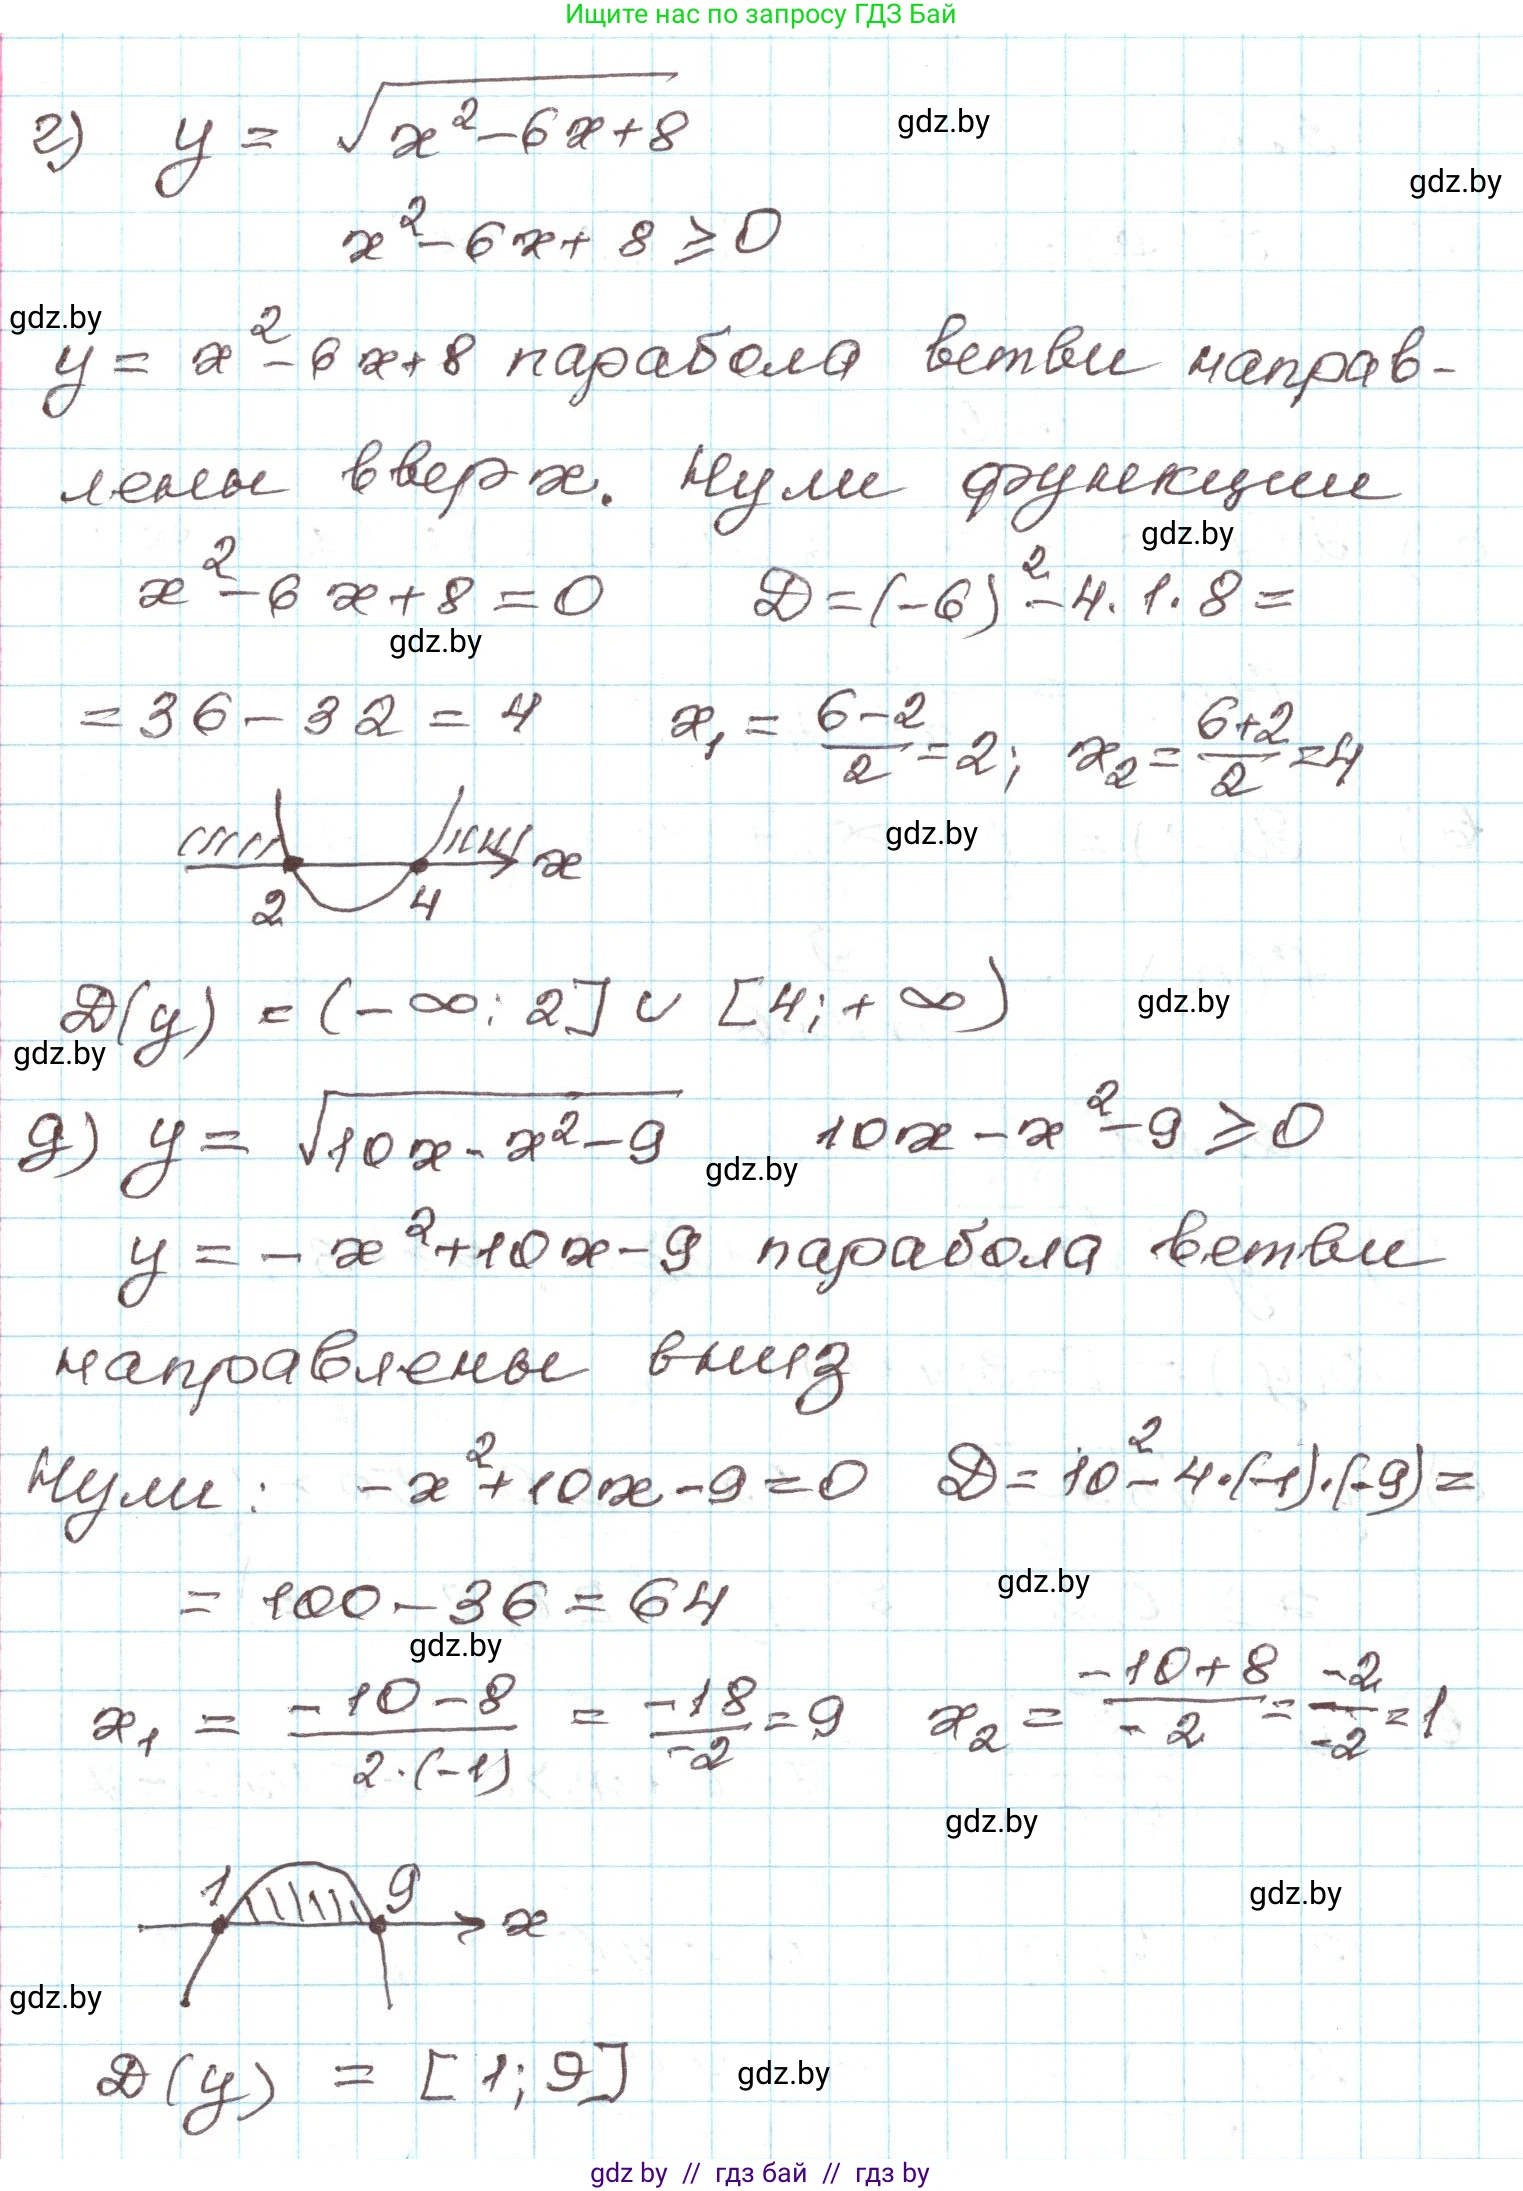 Ищите нас по запросу ГДЗ Бай
г) y = √(x² - 6x + 8)
gdz.by
gdz.by
x² - 6x + 8 ≥ 0
gdz.by
y = x² - 6x + 8 парабола ветви направ-
лены вверх. Нули функции
gdz.by
x² - 6x + 8 = 0 D = (-6)² - 4·1·8 =
gdz.by
= 36 - 32 = 4 x₁ = (6-2)/2 = 2; x₂ = (6+2)/2 = 4
gdz.by
x
2 4
D(y) = (-∞; 2] ∪ [4; +∞)
gdz.by
gdz.by
д) y = √(10x - x² - 9) 10x - x² - 9 ≥ 0
gdz.by
y = -x² + 10x - 9 парабола ветви
направлены вниз
Нули: -x² + 10x - 9 = 0 D = 10² - 4·(-1)·(-9) =
= 100 - 36 = 64
gdz.by
gdz.by
x₁ = (-10-8)/(2·(-1)) = -18/-2 = 9 x₂ = (-10+8)/-2 = -2/-2 = 1
gdz.by
1 9 x
gdz.by
gdz.by
D(y) = [1; 9]
gdz.by
gdz by // гдз бай // гдз by